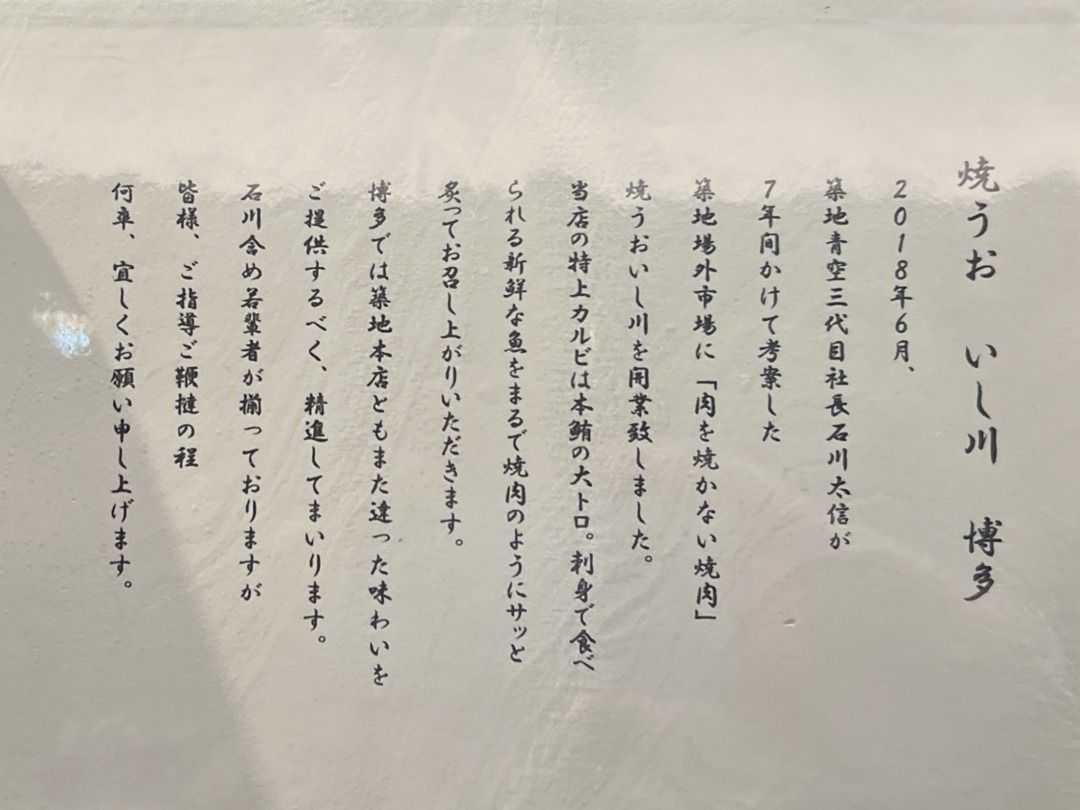 焼うお　いし川　博多
2018年6月、
築地青空三代目社長石川太信が
7年間かけて考案した
築地場外市場に「肉を焼かない焼肉」
焼うおいし川を開業致しました。
当店の特上カルビは本鮪の大トロ。刺身で食べ
られる新鮮な魚をまるで焼肉のようにサッと
炙ってお召し上がりいただきます。
博多では築地本店ともまた違った味わいを
ご提供するべく、精進してまいります。
石川含め若輩者が揃っておりますが
皆様、ご指導ご鞭撻の程
何卒、宜しくお願い申し上げます。